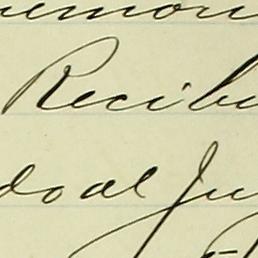 emori
Recibi
do al Ju